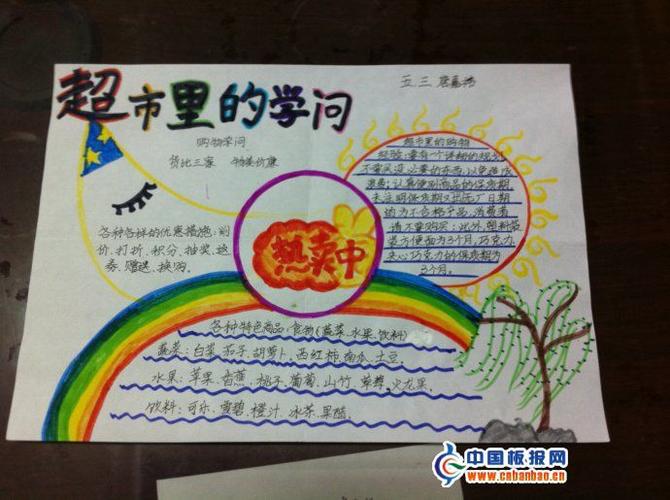 超市里的学问
五三
购物学问
货比三家 物美价廉
各种各样的优惠措施:削
价、打折、积分、抽奖、返
券、赠送、换购。
热卖中
超市里的购物
经验:要有个详细的规划,
不要买没必要的东西,以免造成
浪费;认真鉴别商品的保质期,
未注明保质期又出厂日期
均为不合格产品,消费者
请不要购买;此外,塑料袋
装方便面为3个月,巧克力、
夹心巧克力的保质期为
3个月。
各种特色商品:食物(蔬菜、水果、饮料)
蔬菜:白菜、茄子、胡萝卜、西红柿、南瓜、土豆。
水果:苹果、香蕉、桃子、葡萄、山竹、草莓、火龙果。
饮料:可乐、雪碧、橙汁、冰茶、果醋。
中国板报网
www.cnbanbao.cn